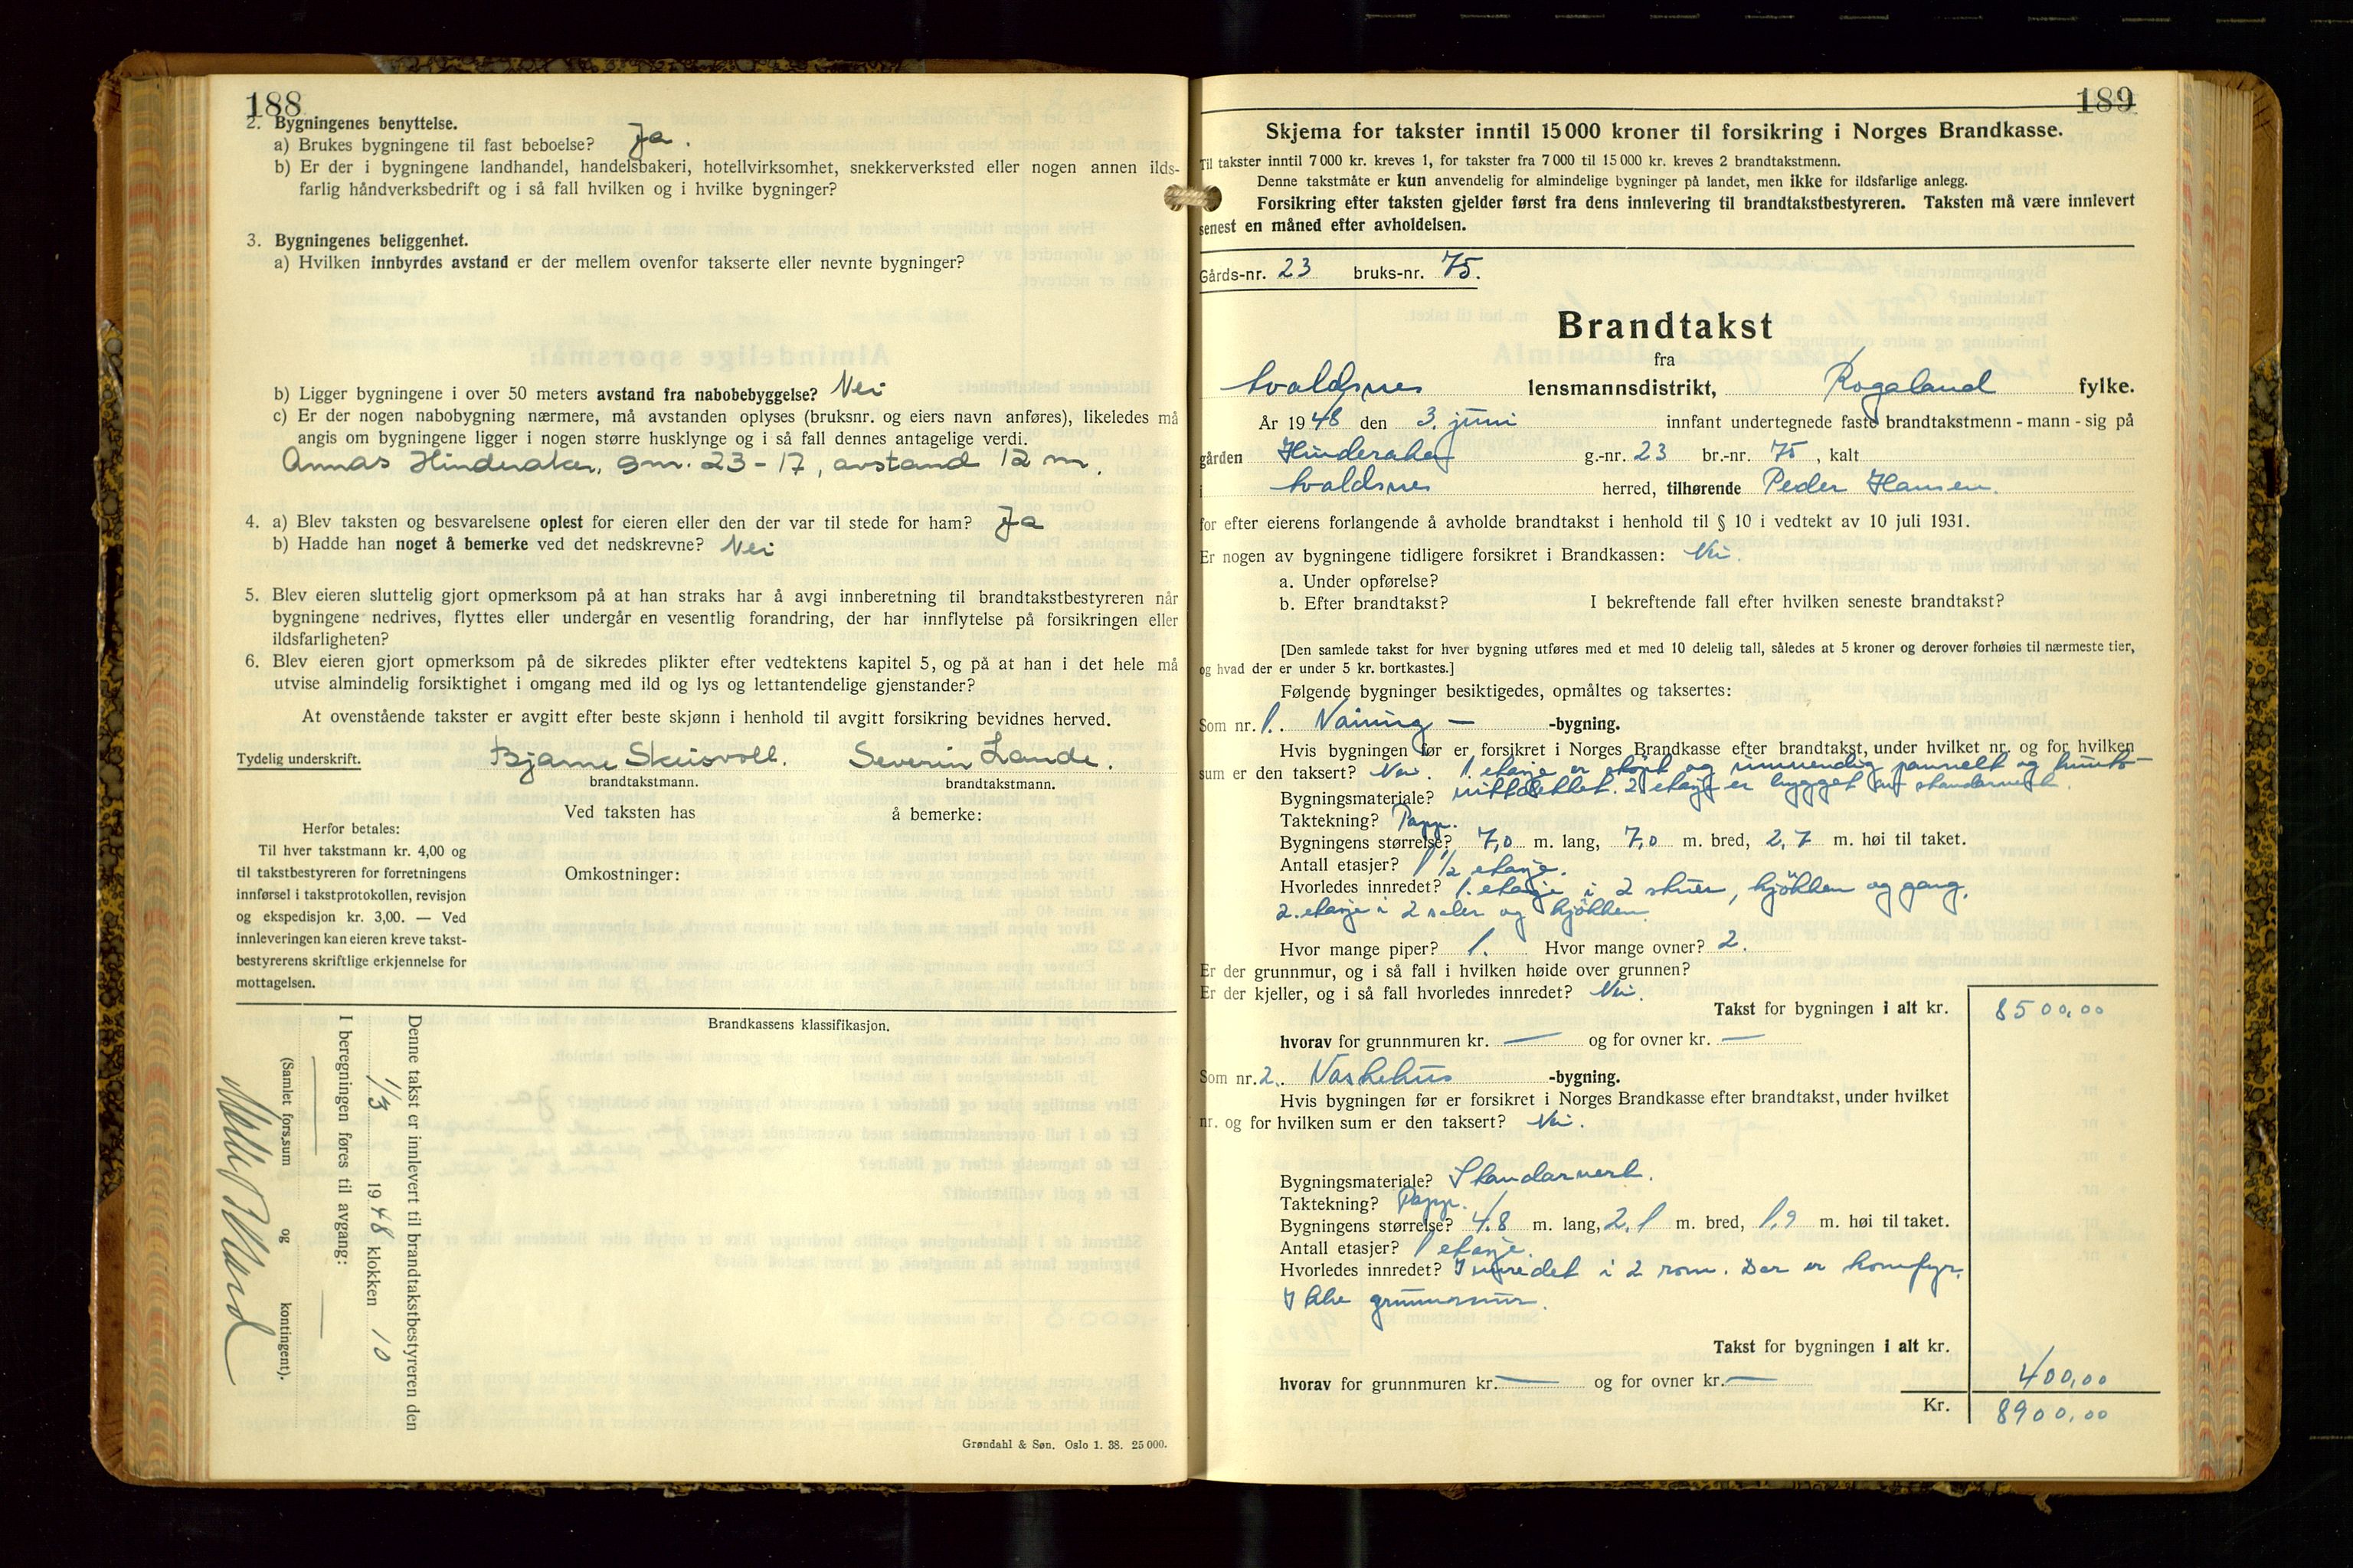 188
2. Bygningenes benyttelse.
a) Brukes bygningene til fast beboelse? Ja.
b) Er der i bygningene landhandel, handelsbakeri, hotellvirksomhet, snekkerverksted eller nogen annen ilds-
farlig håndverksbedrift og i så fall hvilken og i hvilke bygninger?
3. Bygningenes beliggenhet.
a) Hvilken innbyrdes avstand er der mellem ovenfor takserte eller nevnte bygninger?
b) Ligger bygningene i over 50 meters avstand fra nabobebyggelse? Nei
c) Er der nogen nabobygning nærmere, må avstanden oplyses (bruksnr. og eiers navn anføres), likeledes må
angis om bygningene ligger i nogen større husklynge og i så fall dennes antagelige verdi.
Annas Hinderaker, gnr. 23-17, avstand 12 m.
4. a) Blev taksten og besvarelsene oplest for eieren eller den der var til stede for ham? Ja
b) Hadde han noget å bemerke ved det nedskrevne? Nei
5. Blev eieren sluttelig gjort opmerksom på at han straks har å avgi innberetning til brandtakstbestyreren når
bygningene nedrives, flyttes eller undergår en vesentlig forandring, der har innflytelse på forsikringen eller
ildsfarligheten?
6. Blev eieren gjort opmerksom på de sikredes plikter efter vedtektens kapitel 5, og på at han i det hele må
utvise almindelig forsiktighet i omgang med ild og lys og lettantendelige gjenstander?
At ovenstående takster er avgitt efter beste skjønn i henhold til avgitt forsikring bevidnes herved.
Tydelig underskrift. Bjarne Skeisvoll. Severin Lande.
brandtakstmann. brandtakstmann.
Ved taksten has å bemerke:
Herfor betales:
Til hver takstmann kr. 4,00 og
til takstbestyreren for forretningens
innførsel i takstprotokollen, revisjon
og ekspedisjon kr. 3,00. — Ved
innleveringen kan eieren kreve takst-
bestyrerens skriftlige erkjennelse for
mottagelsen.
Omkostninger:
Brandkassens klassifikasjon.
Denne takst er innlevert til brandtakstbestyreren den
1/3 1948 klokken 10
I beregningen føres til avgang:
(Samlet fors.sum og kontingent).
Grøndahl & Søn. Oslo 1. 38. 25 000.
189
Skjema for takster inntil 15 000 kroner til forsikring i Norges Brandkasse.
Til takster inntil 7 000 kr. kreves 1, for takster fra 7 000 til 15 000 kr. kreves 2 brandtakstmenn.
Denne takstmåte er kun anvendelig for almindelige bygninger på landet, men ikke for ildsfarlige anlegg.
Forsikring efter taksten gjelder først fra dens innlevering til brandtakstbestyreren. Taksten må være innlevert
senest en måned efter avholdelsen.
Gårds-nr. 23 bruks-nr. 75.
Brandtakst
fra
Avaldsnes lensmannsdistrikt, Rogaland fylke.
År 1948 den 3. juni innfant undertegnede faste brandtakstmenn - mann - sig på
gården Hinderaker g.-nr. 23 br.-nr. 75, kalt
i Avaldsnes herred, tilhørende Peder Hansen.
for efter eierens forlangende å avholde brandtakst i henhold til § 10 i vedtekt av 10 juli 1931.
Er nogen av bygningene tidligere forsikret i Brandkassen: Nei.
a. Under opførelse?
b. Efter brandtakst? I bekreftende fall efter hvilken seneste brandtakst?
[Den samlede takst for hver bygning utføres med et med 10 delelig tall, således at 5 kroner og derover forhøies til nærmeste tier,
og hvad der er under 5 kr. bortkastes.]
Følgende bygninger besiktigedes, opmåltes og taksertes:
Som nr. 1. Våning — -bygning.
Hvis bygningen før er forsikret i Norges Brandkasse efter brandtakst, under hvilket nr. og for hvilken
sum er den taksert? Nei. 1. etasje er støpt og innvendig pannelt og
Bygningsmateriale? 2 etasje er bygget av standarverk.
Taktekning? Papp.
Bygningens størrelse? 7,0 m. lang, 7,0 m. bred, 2,7 m. høi til taket.
Antall etasjer? 1 1/2 etasje.
Hvorledes innredet? 1. etasje i 2 stuer, kjökken og gang.
2. etasje i 2 saler og kjökken
Hvor mange piper? 1. Hvor mange ovner? 2.
Er der grunnmur, og i så fall i hvilken høide over grunnen?
Er der kjeller, og i så fall hvorledes innredet? Nei.
Takst for bygningen i alt kr. 8500,00
hvorav for grunnmuren kr. — og for ovner kr. —
Som nr. 2. Vaskehus -bygning.
Hvis bygningen før er forsikret i Norges Brandkasse efter brandtakst, under hvilket
nr. og for hvilken sum er den taksert? Nei.
Bygningsmateriale? Standarverk.
Taktekning? Papp.
Bygningens størrelse? 4.8 m. lang, 2,1 m. bred, 1,9 m. høi til taket.
Antall etasjer? 1 etasje.
Hvorledes innredet? Innredet i 2 rom. Der er komfyr.
Ikke grunnmur.
Takst for bygningen i alt kr. 400,00
hvorav for grunnmuren kr. — og for ovner kr. —
Kr. 8900,00